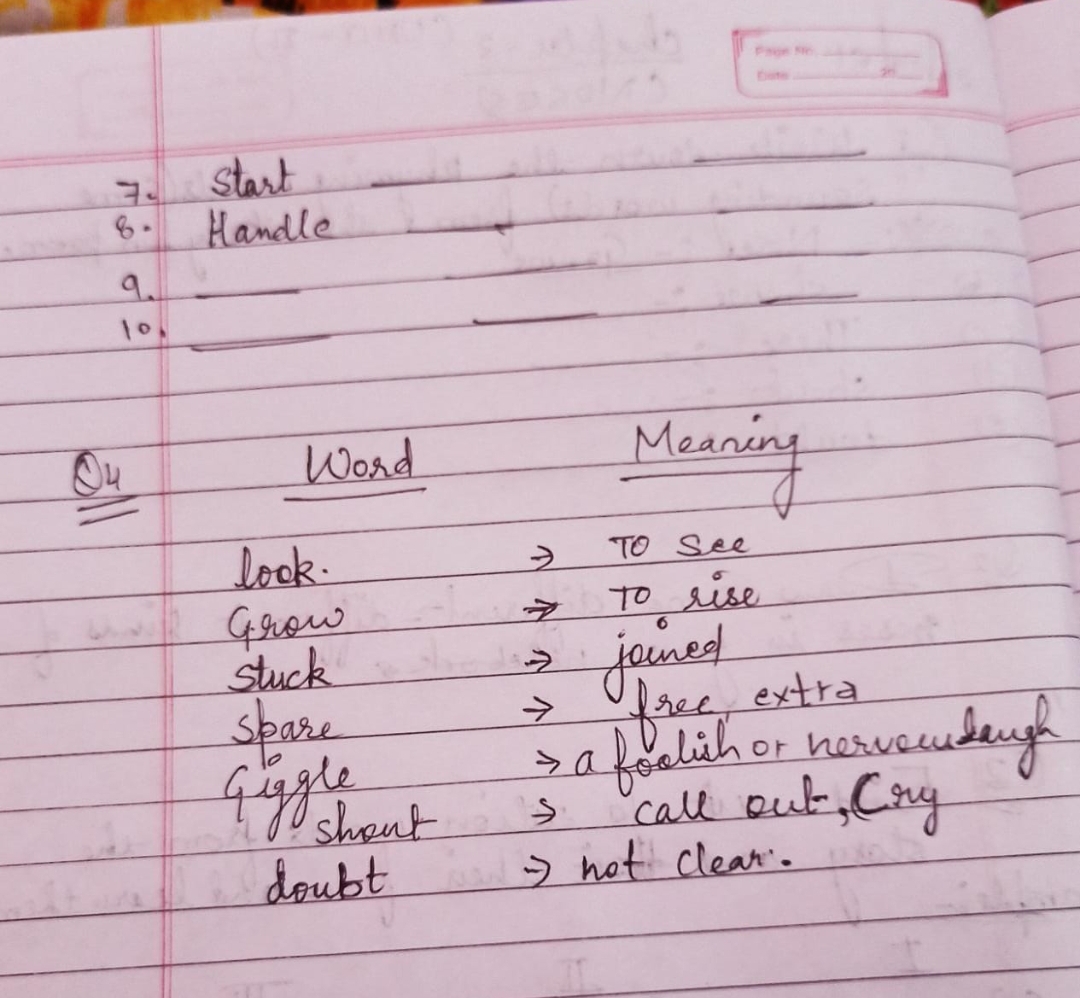 Page No.
Date 20
7. Start
8. Handle
9.
10.
Q4 Word Meaning
look. → TO see
Grow → TO rise
stuck → joined
spare → free, extra
Giggle → a foolish or nervous laugh
shout → call out, Cry
doubt → not clear.